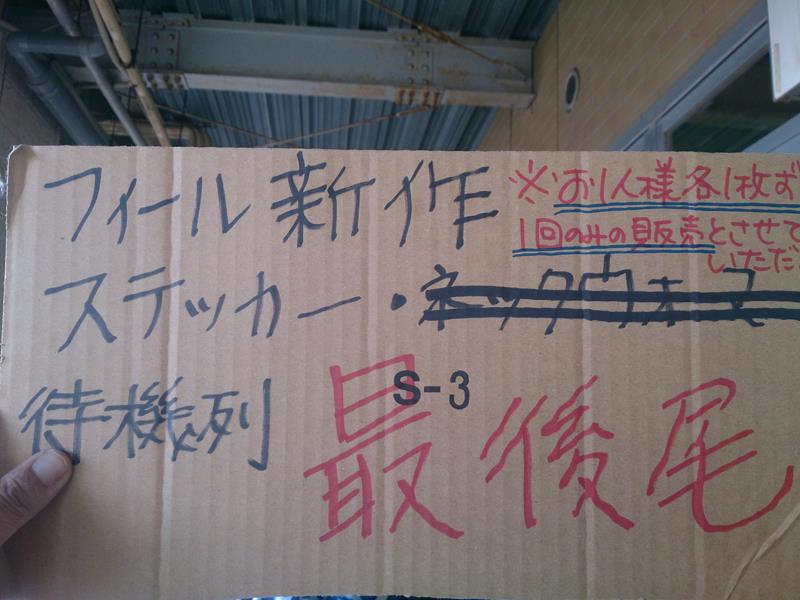 フィール新作
※お1人様各1枚ず
1回のみの販売とさせて
いただ
ステッカー・ネックウォー
待機列
S-3
最後尾